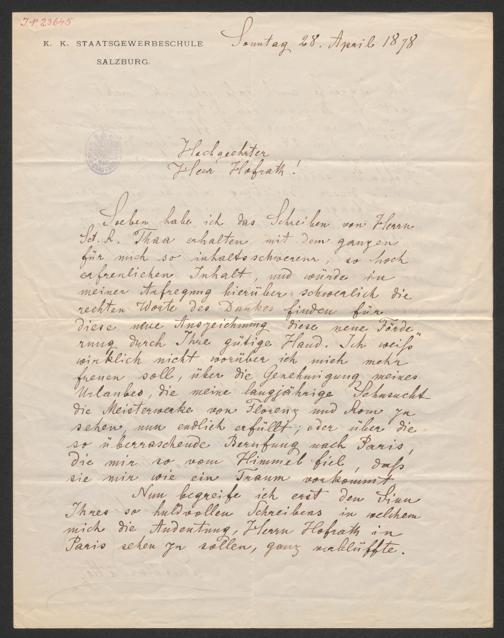 I.N. 23645
K. K. STAATSGEWERBESCHULE
SALZBURG.
Sonntag 28. April 1878
Hochgeehrter
Herr Hofrath!
Soeben habe ich das Schreiben von Herrn
Sct. R. Thaa erhalten, mit dem ganzen
für mich so inhaltsschweren, so hoch
erfreulichen Inhalt, und würde in
meiner Aufregung hierüber schwerlich die
rechten Worte des Dankes finden für
diese neue Auszeichnung diese neue Förde
rung durch Ihre gütige Hand. Ich weiß
wirklich nicht worüber ich mich mehr
freuen soll, über die Genehmigung meines
Urlaubes, die meine langjährige Sehnsucht
die Meisterwerke von Florenz und Rom zu
sehen, nun endlich erfüllt; oder über die
so überraschende Berufung nach Paris,
die mir so vom Himmel fiel, daß
sie mir wie ein Traum vorkommt.
Nun begreife ich erst den Sinn
Ihres so huldvollen Schreibens in welchem
mich die Andeutung, Herrn Hofrath in
Paris sehen zu sollen, ganz verblüffte.